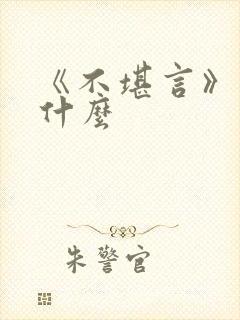 《不堪言》
什麼
朱警官